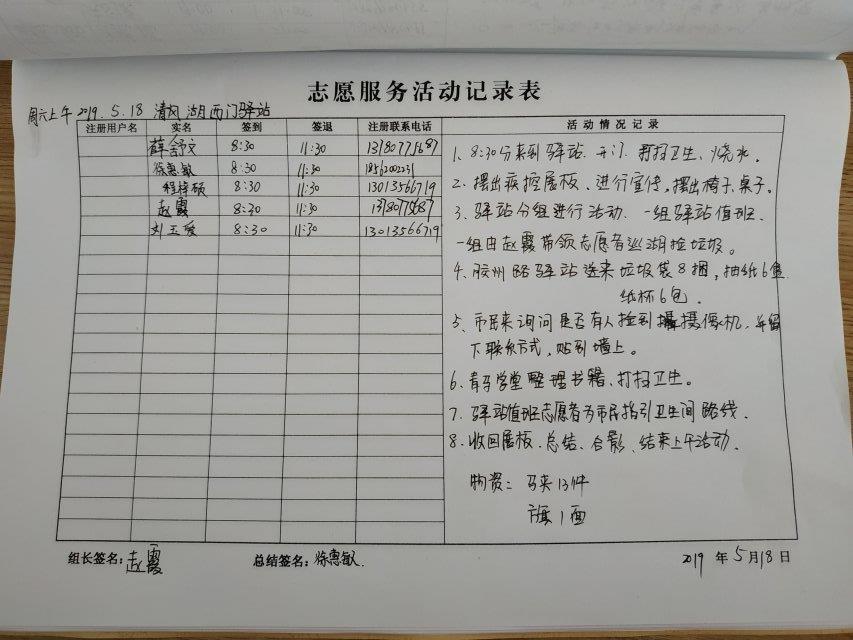 志愿服务活动记录表
周六上午 2019.5.18 清风湖西门驿站
注册用户名 实名 签到 签退 注册联系电话 活动情况记录
薛舒文 8:30 11:30
徐惠敏 8:30 11:30 18562002231
程梓硕 8:30 11:30 13013566719
赵霞 8:30 11:30
刘玉爱 8:30 11:30 13013566719
1、8:30分来到驿站.开门.打扫卫生、烧水。
2、摆出疾控展板、进行宣传,摆出椅子、桌子。
3、驿站分组进行活动.一组驿站值班.
一组由赵霞带领志愿者巡湖捡垃圾。
4、胶州路驿站送来垃圾袋8捆,抽纸6盒
纸杯6包.
5、市民来询问是否有人捡到摄像机,并留
下联系方式,贴到墙上。
6、青马学堂整理书籍、打扫卫生。
7、驿站值班志愿者为市民指引卫生间路线.
8、收回展板、总结、合影、结束上午活动.
物资:马夹13件
旗1面
组长签名:赵霞 总结签名:徐惠敏. 2019年5月18日